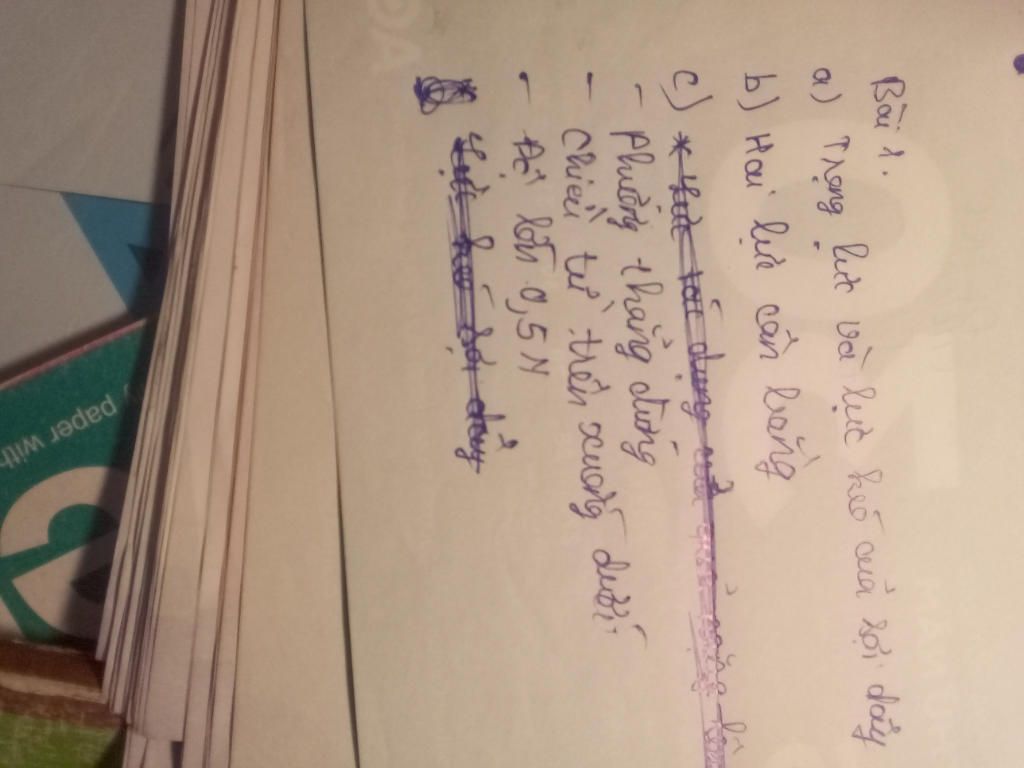 Bài 1.
a) Trọng lực và lực kéo của sợi dây
b) Hai lực cân bằng
c) * Lực tác dụng của quả nặng lên
- Phương thẳng đứng
- Chiều từ trên xuống dưới
- Độ lớn 0,5 N
Lực kéo sợi dây
paper with